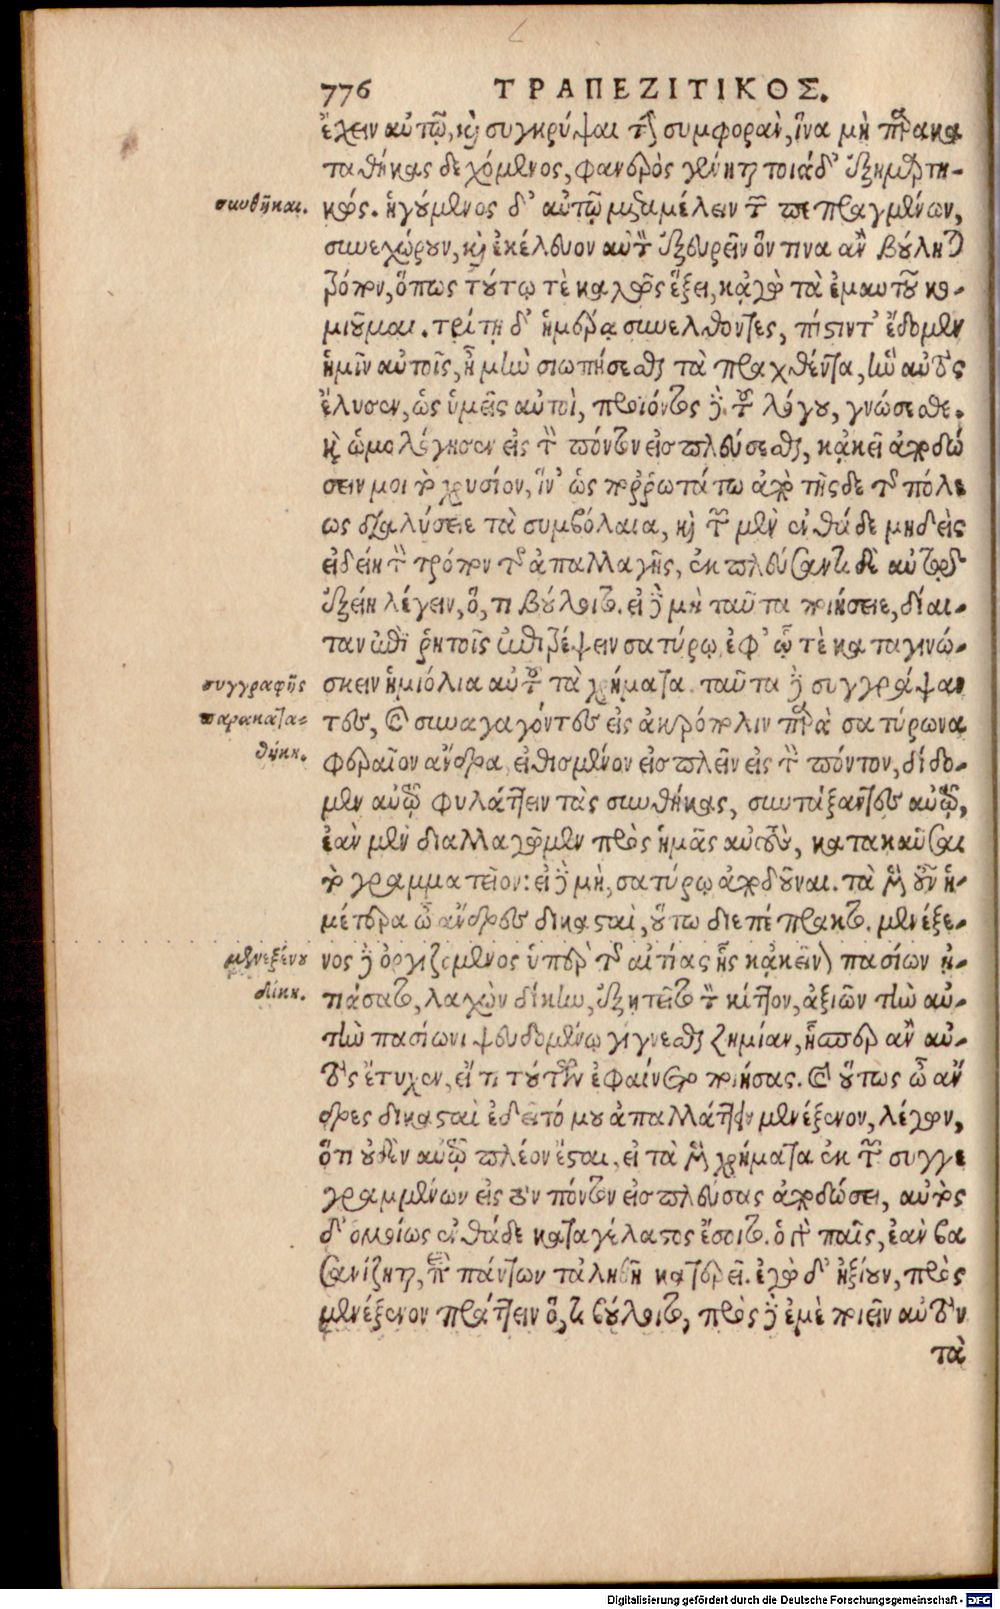 776 ΤΡΑΠΕΖΙΤΙΚΟΣ.
ἔχειν αὐτῷ, καὶ συγκρύψαι τὴν συμφορὰν, ἵνα μὴ παρακα
ταθήκας δεχόμενος, φανερὸς γένηται τοιάδ' ἐξημαρτη-
συνθῆκαι.
κώς. ἡγούμενος δ' αὐτῷ μεταμέλειν τῶν πεπραγμένων,
συνεχώρουν, καὶ ἐκέλευον αὐτὸν ἐξευρεῖν ὅν τινα ἂν βούληται
τρόπον, ὅπως τούτῳ τὲ καλῶς ἕξει, κἀγὼ τὰ ἐμαυτοῦ κο-
μιοῦμαι. τρίτῃ δ' ἡμέρᾳ συνελθόντες, πίστιν τ' ἔδομεν
ἡμῖν αὐτοῖς, ἦ μὴν σιωπήσεσθαι τὰ πραχθέντα, ἣν αὐτὸς
ἔλυσεν, ὡς ὑμεῖς αὐτοὶ, προϊόντος δὲ τοῦ λόγου, γνώσεσθε.
καὶ ὡμολόγησεν εἰς τὸν πόντον εἰσπλεύσεσθαι, κἀκεῖ ἀποδώ
σειν μοι τὸ χρυσίον, ἵν' ὡς πορρωτάτω ἀπὸ τῆσδε τῆς πόλε
ως διαλύσειε τὰ συμβόλαια, καὶ τῶν μὲν ἐνθάδε μηδεὶς
εἰδείη τὸν τρόπον τῆς ἀπαλλαγῆς, ἐκπλεύσαντι δὲ αὐτῷ
ἐξείη λέγειν, ὅ, τι βούλοιτο. εἰ δὲ μὴ ταῦτα ποιήσειε, δίαι-
ταν ἐπὶ ῥητοῖς ἐπιτρέψειν σατύρῳ, ἐφ' ᾧ τὲ καταγινώ-
συγγραφῆς
σκειν ἡμιόλια αὐτοῦ τὰ χρήματα. ταῦτα δὲ συγγράψαν
παρακατα-
τες, καὶ συναγαγόντες εἰς ἀκρόπολιν παρὰ σατύρωνα
θήκη.
φεραῖον ἄνδρα, εἰθισμένον εἰσπλεῖν εἰς τὸν πόντον, δίδο-
μεν αὐτῷ φυλάττειν τὰς συνθήκας, συντάξαντες αὐτῷ,
ἐὰν μὲν διαλλαγῶμεν πρὸς ἡμᾶς αὐτοὺς, κατακαῦσαι
τὸ γραμματεῖον: εἰ δὲ μὴ, σατύρῳ ἀποδοῦναι. τὰ μὲν οὖν ἡ-
μέτερα ὦ ἄνδρες δικασταὶ, οὕτω διεπέπρακτο. μενέξε-
μενεξένου
νος δὲ ὀργιζόμενος ὑπὲρ τῆς αἰτίας ἧς κἀκεῖνον πασίων ᾐ-
δίκη.
τιάσατο, λαχὼν δίκην, ἐξῃτεῖτο τὸν κίττον, ἀξιῶν τὴν αὐ-
τὴν πασίωνι ψευδομένῳ γίγνεσθαι ζημίαν, ἧσπερ ἂν αὐ-
τὸς ἔτυχεν, εἴ τι τούτων ἐφαίνετο ποιήσας. καὶ οὗτος ὦ ἄν
δρες δικασταὶ ἐδεῖτό μου ἀπαλλάττειν μενέξενον, λέγων,
ὅτι οὐδὲν αὐτῷ πλέον ἔσται, εἰ τὰ μὲν χρήματα ἐκ τῶν συγγε
γραμμένων εἰς τὸν πόντον εἰσπλεύσας ἀποδώσει, αὐτὸς
δ' ὁμοίως ἐνθάδε καταγέλαστος ἔσοιτο. ὁ γὰρ παῖς, ἐὰν βα
σανίζηται, περὶ πάντων τἀληθῆ κατερεῖ. ἐγὼ δ' ἠξίουν, πρὸς
μενέξενον πράττειν ὅ, τι βούλοιτο, πρὸς δὲ ἐμὲ ποιεῖν αὐτὸν
τὰ
Digitalisierung gefördert durch die Deutsche Forschungsgemeinschaft - DFG